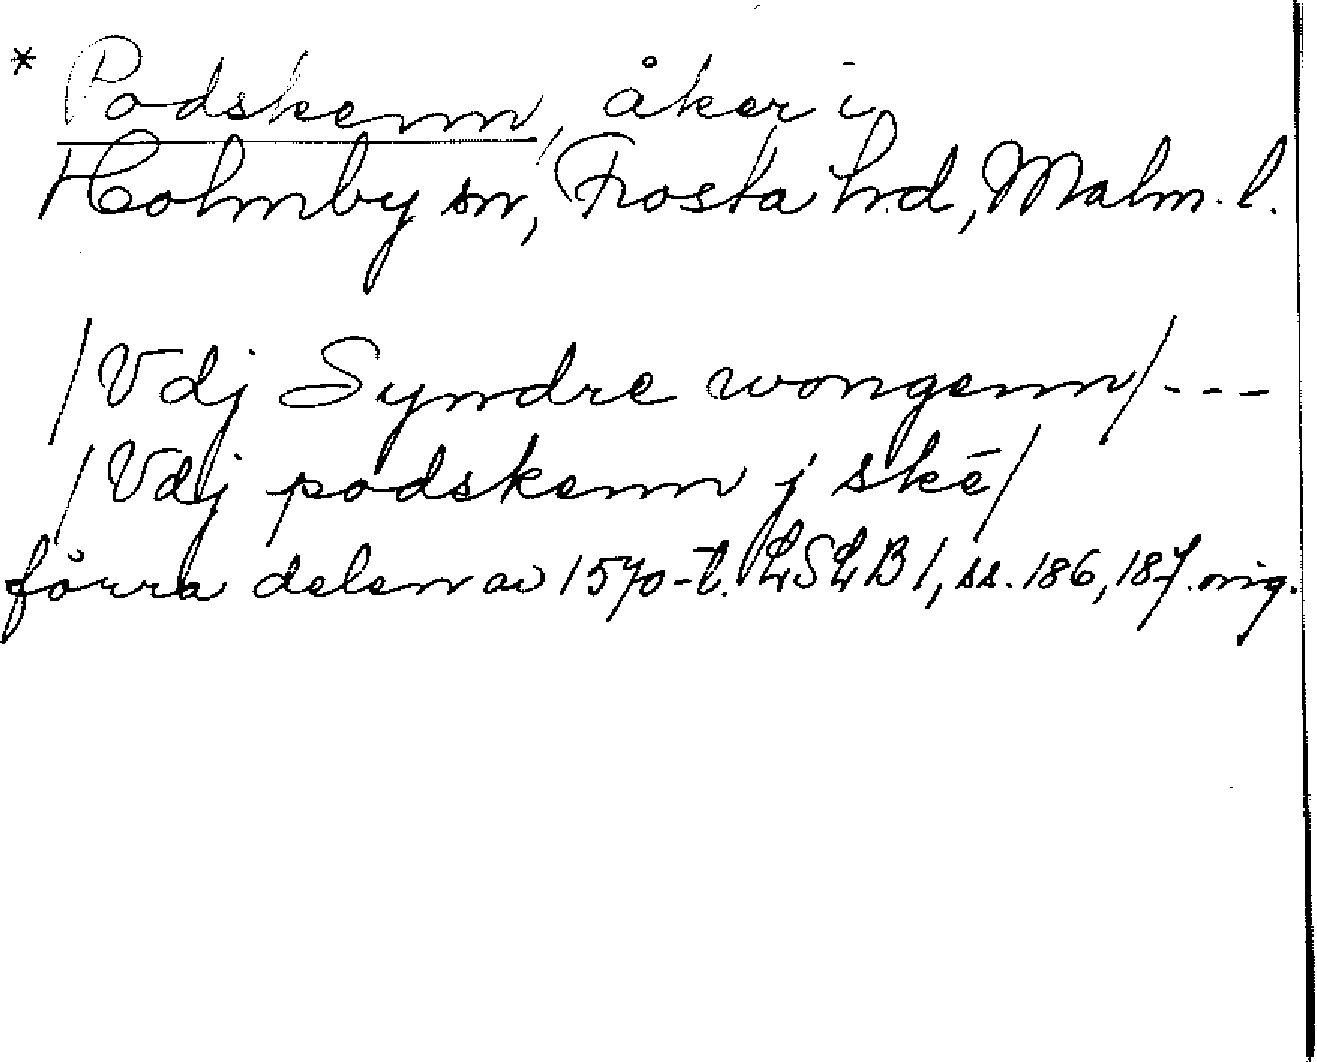 * Podskenn, åker i
Holmby sn, Frosta hrd, Malm. l.
/Vdj Syndre wongenn/---
/Vdj podskenn j skē/
förra delen av 1570-t. LSLB 1, ss. 186, 187. orig.